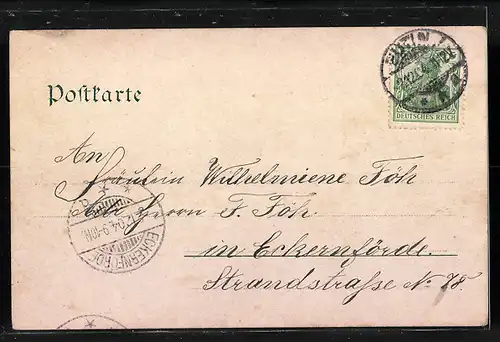 EUTIN
DEUTSCHES REICH
Postkarte
An
Fräulein Wilhelmiene Föh
Adr Herrn F. Föh
in Eckernförde.
Strandstraße No 78.
12.04.9-10N.
ECKERNFÖRDE